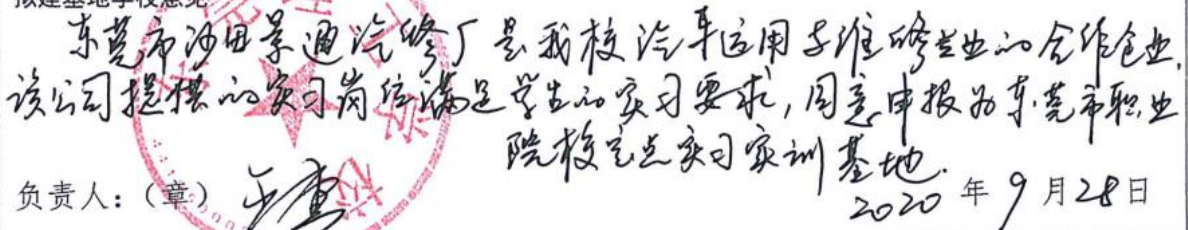 拟建基地学校意见
东莞市沙田景通汽修厂是我校汽车运用与维修专业的合作企业,
该公司提供的实习岗位满足学生的实习要求,同意申报为东莞市职业
院校定点实习实训基地.
负责人:(章)
2020年9月28日